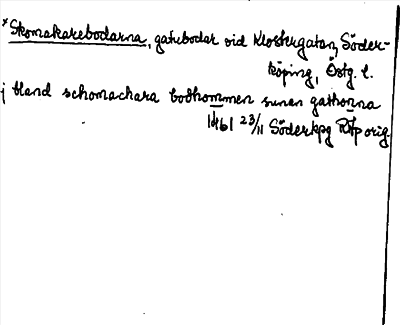 *Skomakarebodarna, gatubodar vid Klostergatan, Söder-
köping, Östg. l.
j bland schomachara bodhommen sunan gathonna
1461 23/11 Söderkpg Rfp orig.